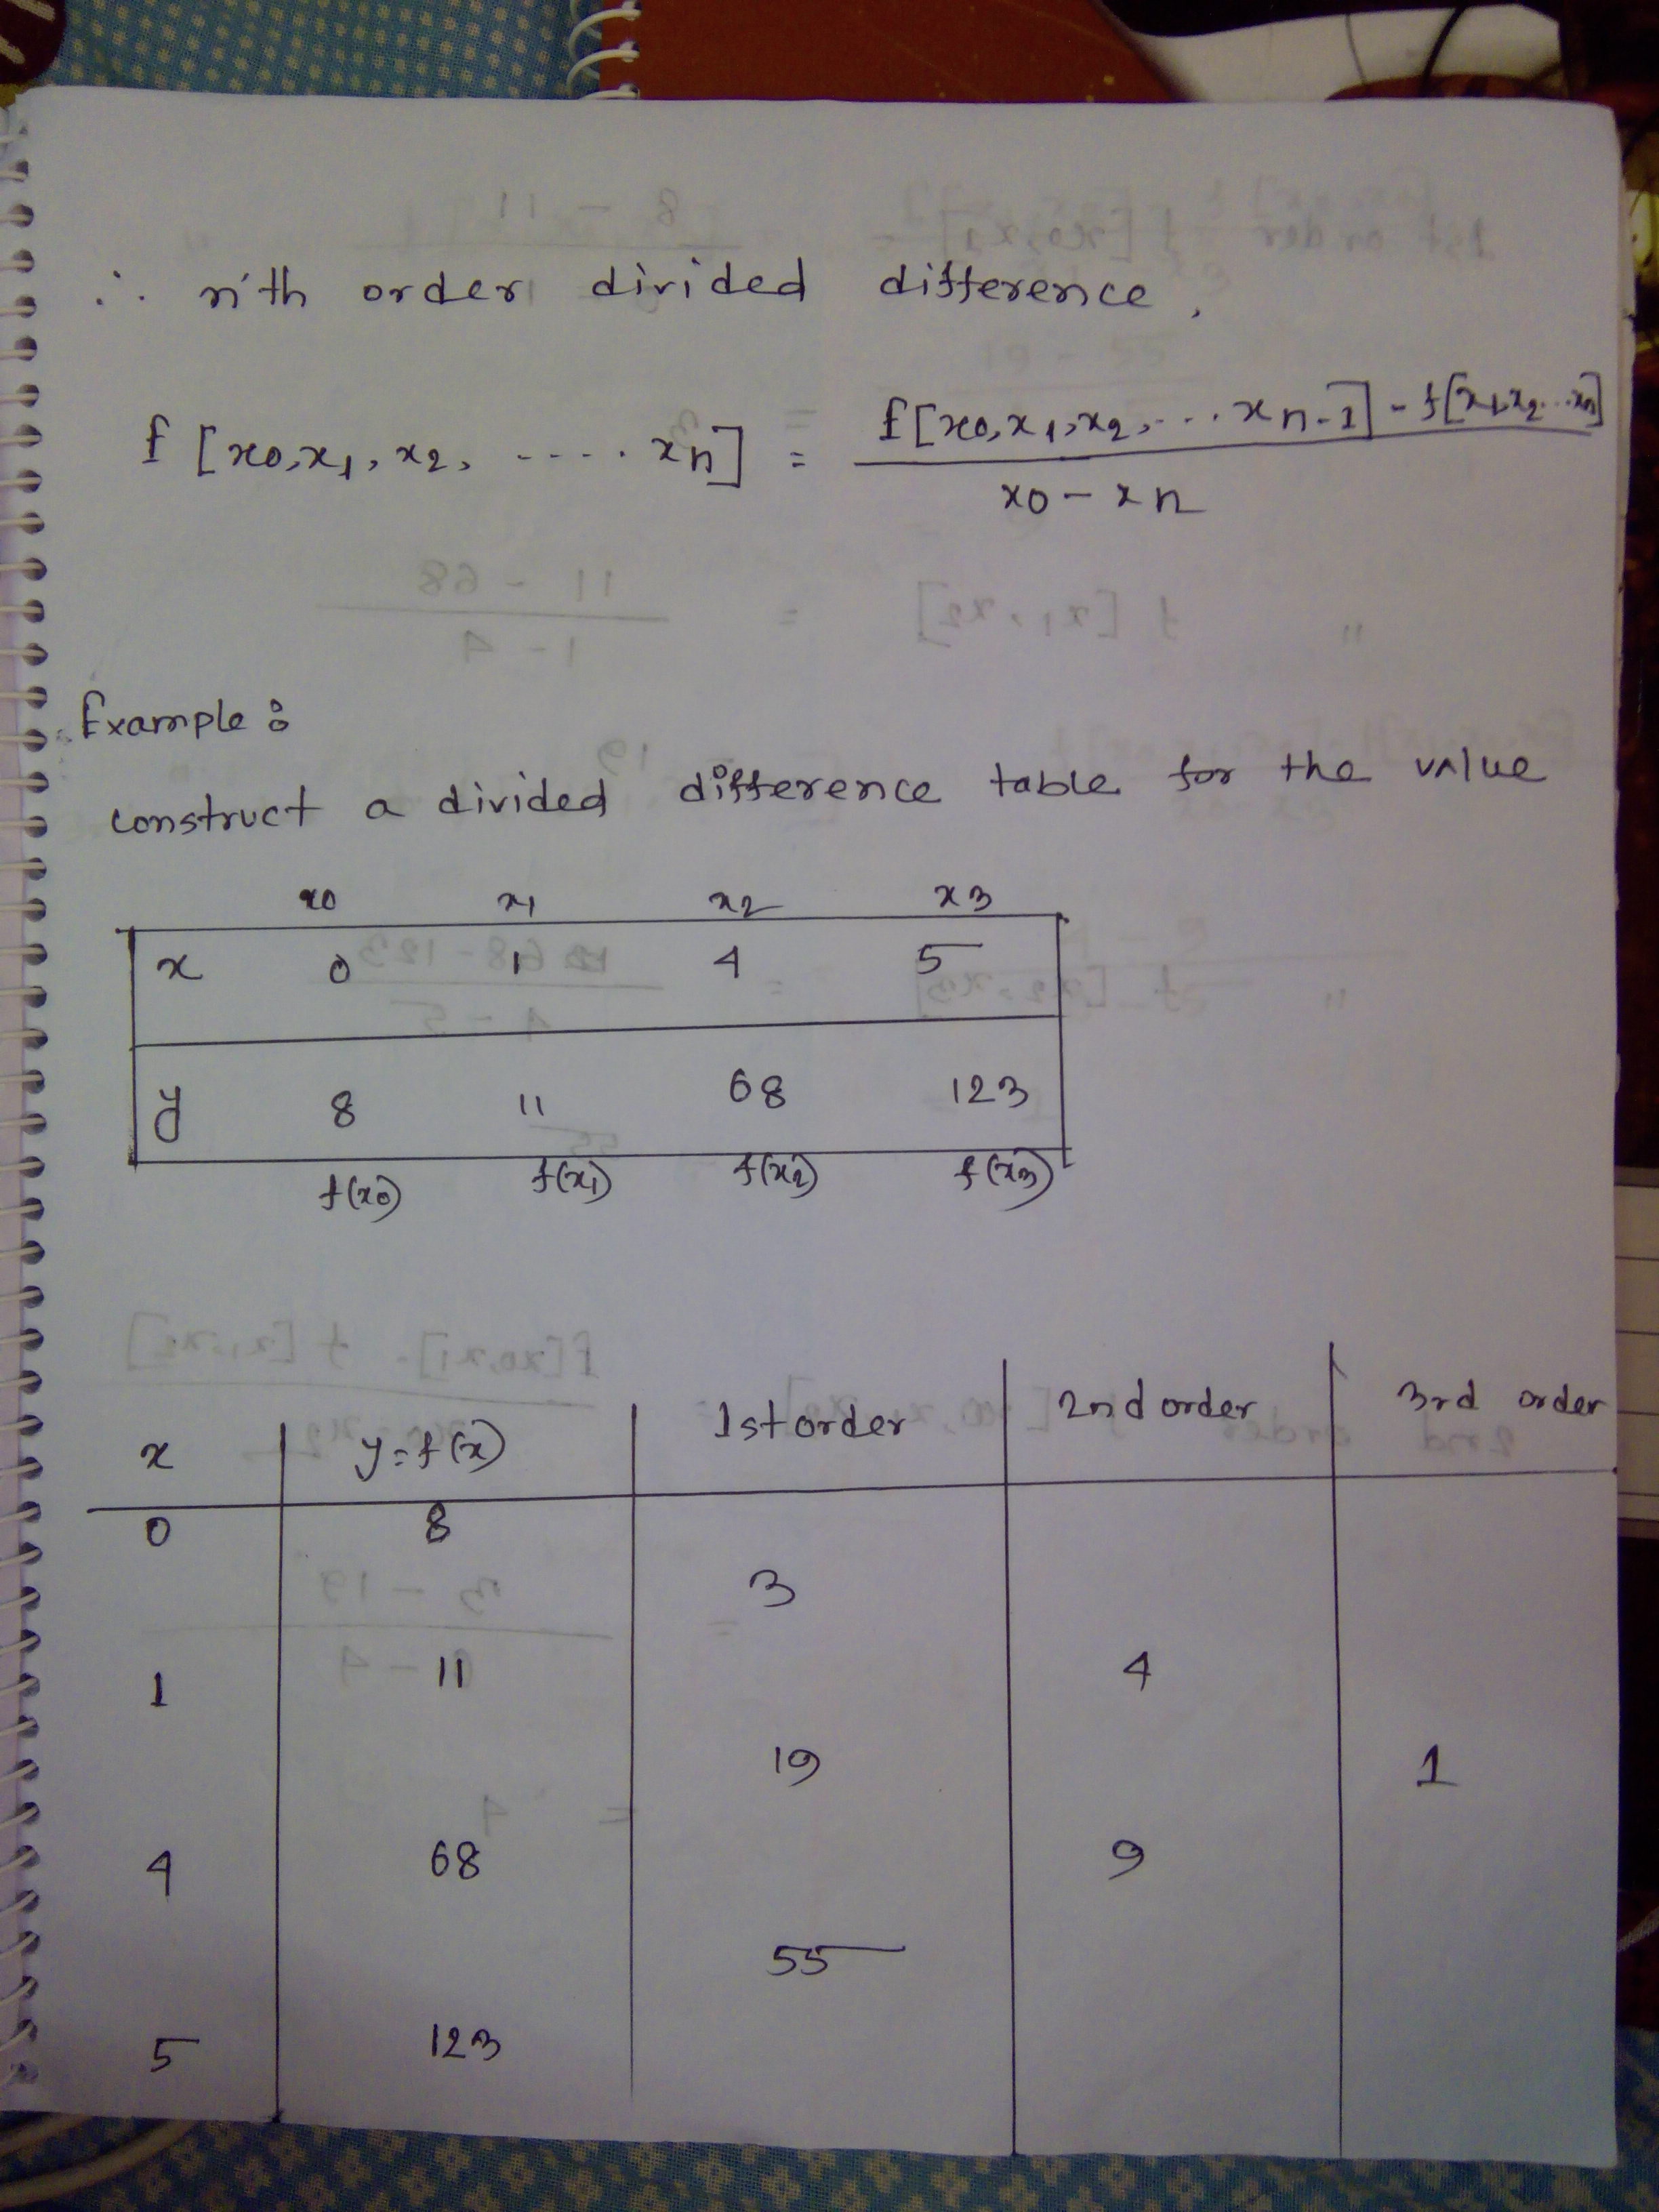 ∴ n'th order divided difference,
f [x0, x1, x2, ---- xn] = f[x0, x1, x2, ... xn-1] - f[x1, x2...xn]
x0 - xn
Example:
construct a divided difference table for the value
x0 x1 x2 x3
x 0 1 4 5
y 8 11 68 123
f(x0) f(x1) f(x2) f(x3)
x y=f(x) 1st order 2nd order 3rd order
0 8
3
1 11 4
19 1
4 68 9
55
5 123